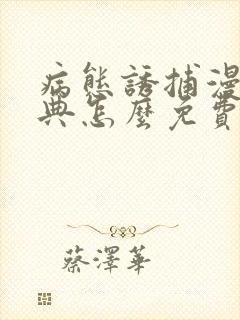 病態誘捕漫
典怎麼免費
蔡澤華